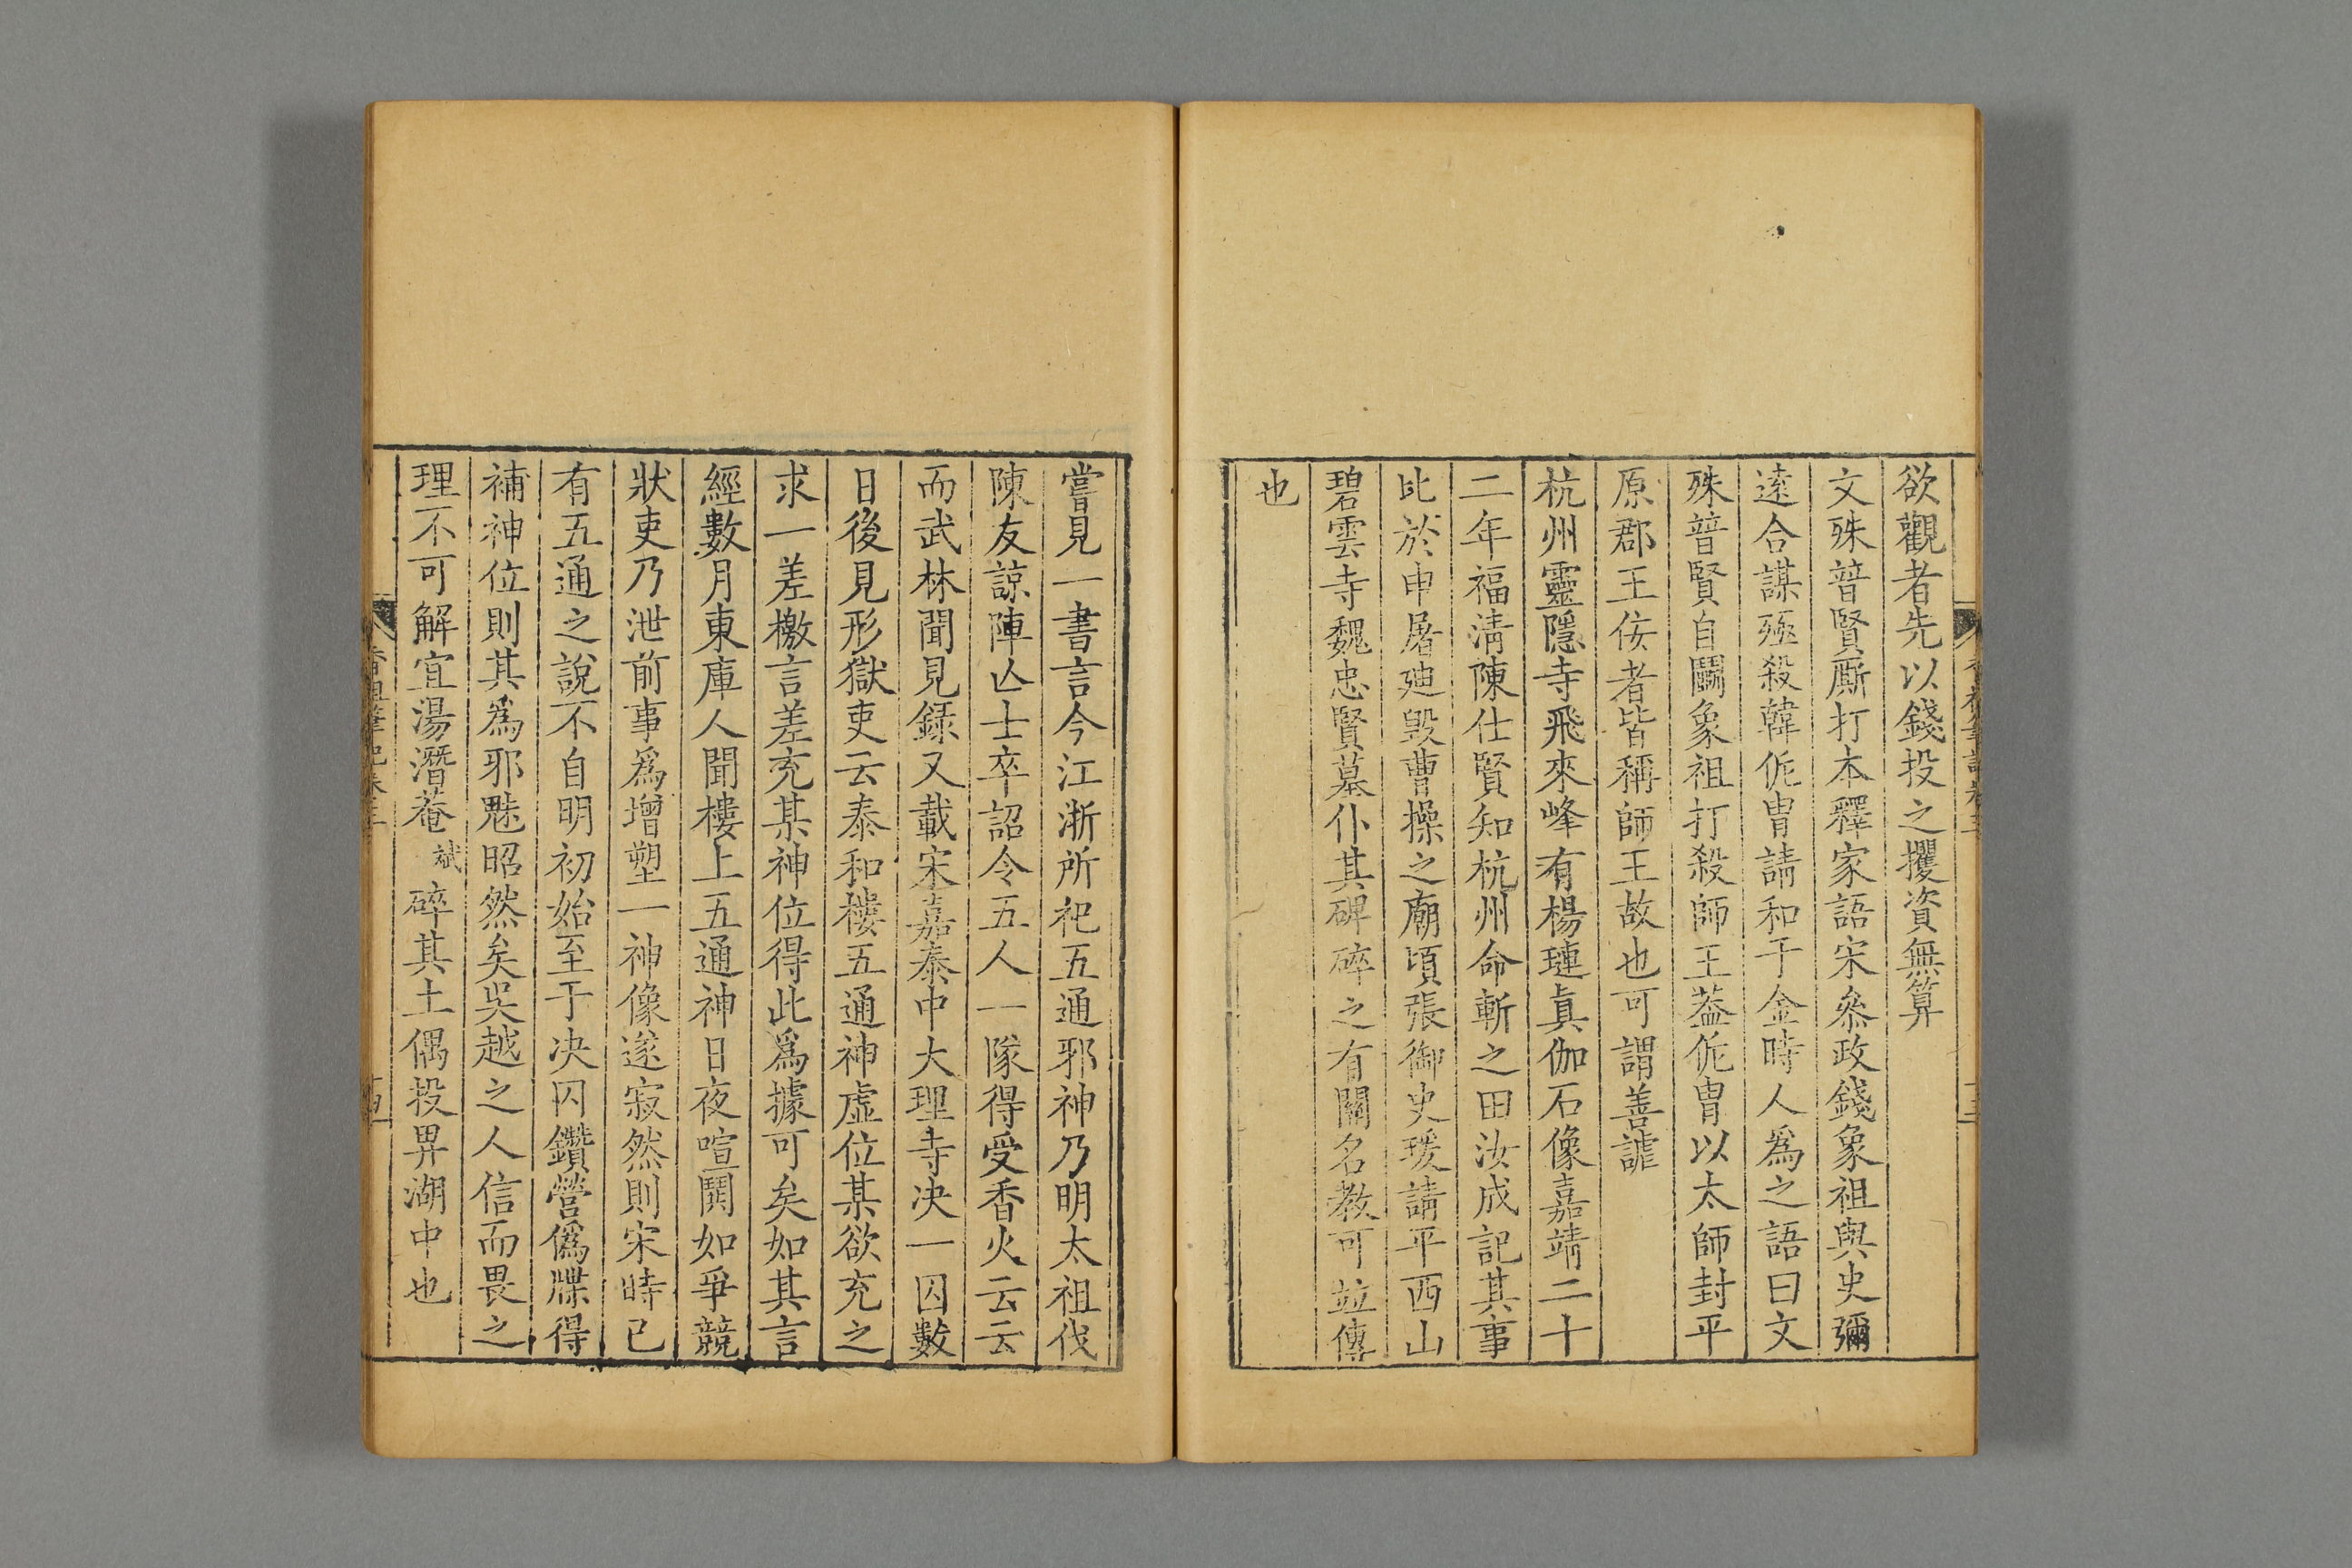 欲觀者先以錢投之攫資無算
文殊普賢廝打本釋家語宋叅政錢象祖與史彌
逺合謀殛殺韓侂胄請和于金時人爲之語曰文
殊普賢自鬬象祖打殺師王葢侂胄以太師封平
原郡王佞者皆稱師王故也可謂善謔
杭州靈隱寺飛來峰有楊璉眞伽石像嘉靖二十
二年福淸陳仕賢知杭州命斬之田汝成記其事
比於申屠廸毁曹操之廟頃張御史瑗請平西山
碧雲寺魏忠賢墓仆其碑碎之有關名教可竝傳
也
嘗見一書言今江浙所祀五通邪神乃明太祖伐
陳友諒陣亾士卒詔令五人一隊得受香火云云
而武林聞見錄又載宋嘉泰中大理寺决一囚數
日後見形獄吏云泰和樓五通神虛位某欲充之
求一差檄言差充某神位得此爲據可矣如其言
經數月東庫人聞樓上五通神日夜喧鬨如爭競
狀吏乃泄前事爲增塑一神像遂寂然則宋時已
有五通之說不自明初始至于决囚鑽營僞牒得
補神位則其爲邪魅昭然矣吳越之人信而畏之
理不可解宜湯潛菴斌碎其土偶投畀湖中也
香祖筆記卷三
十四